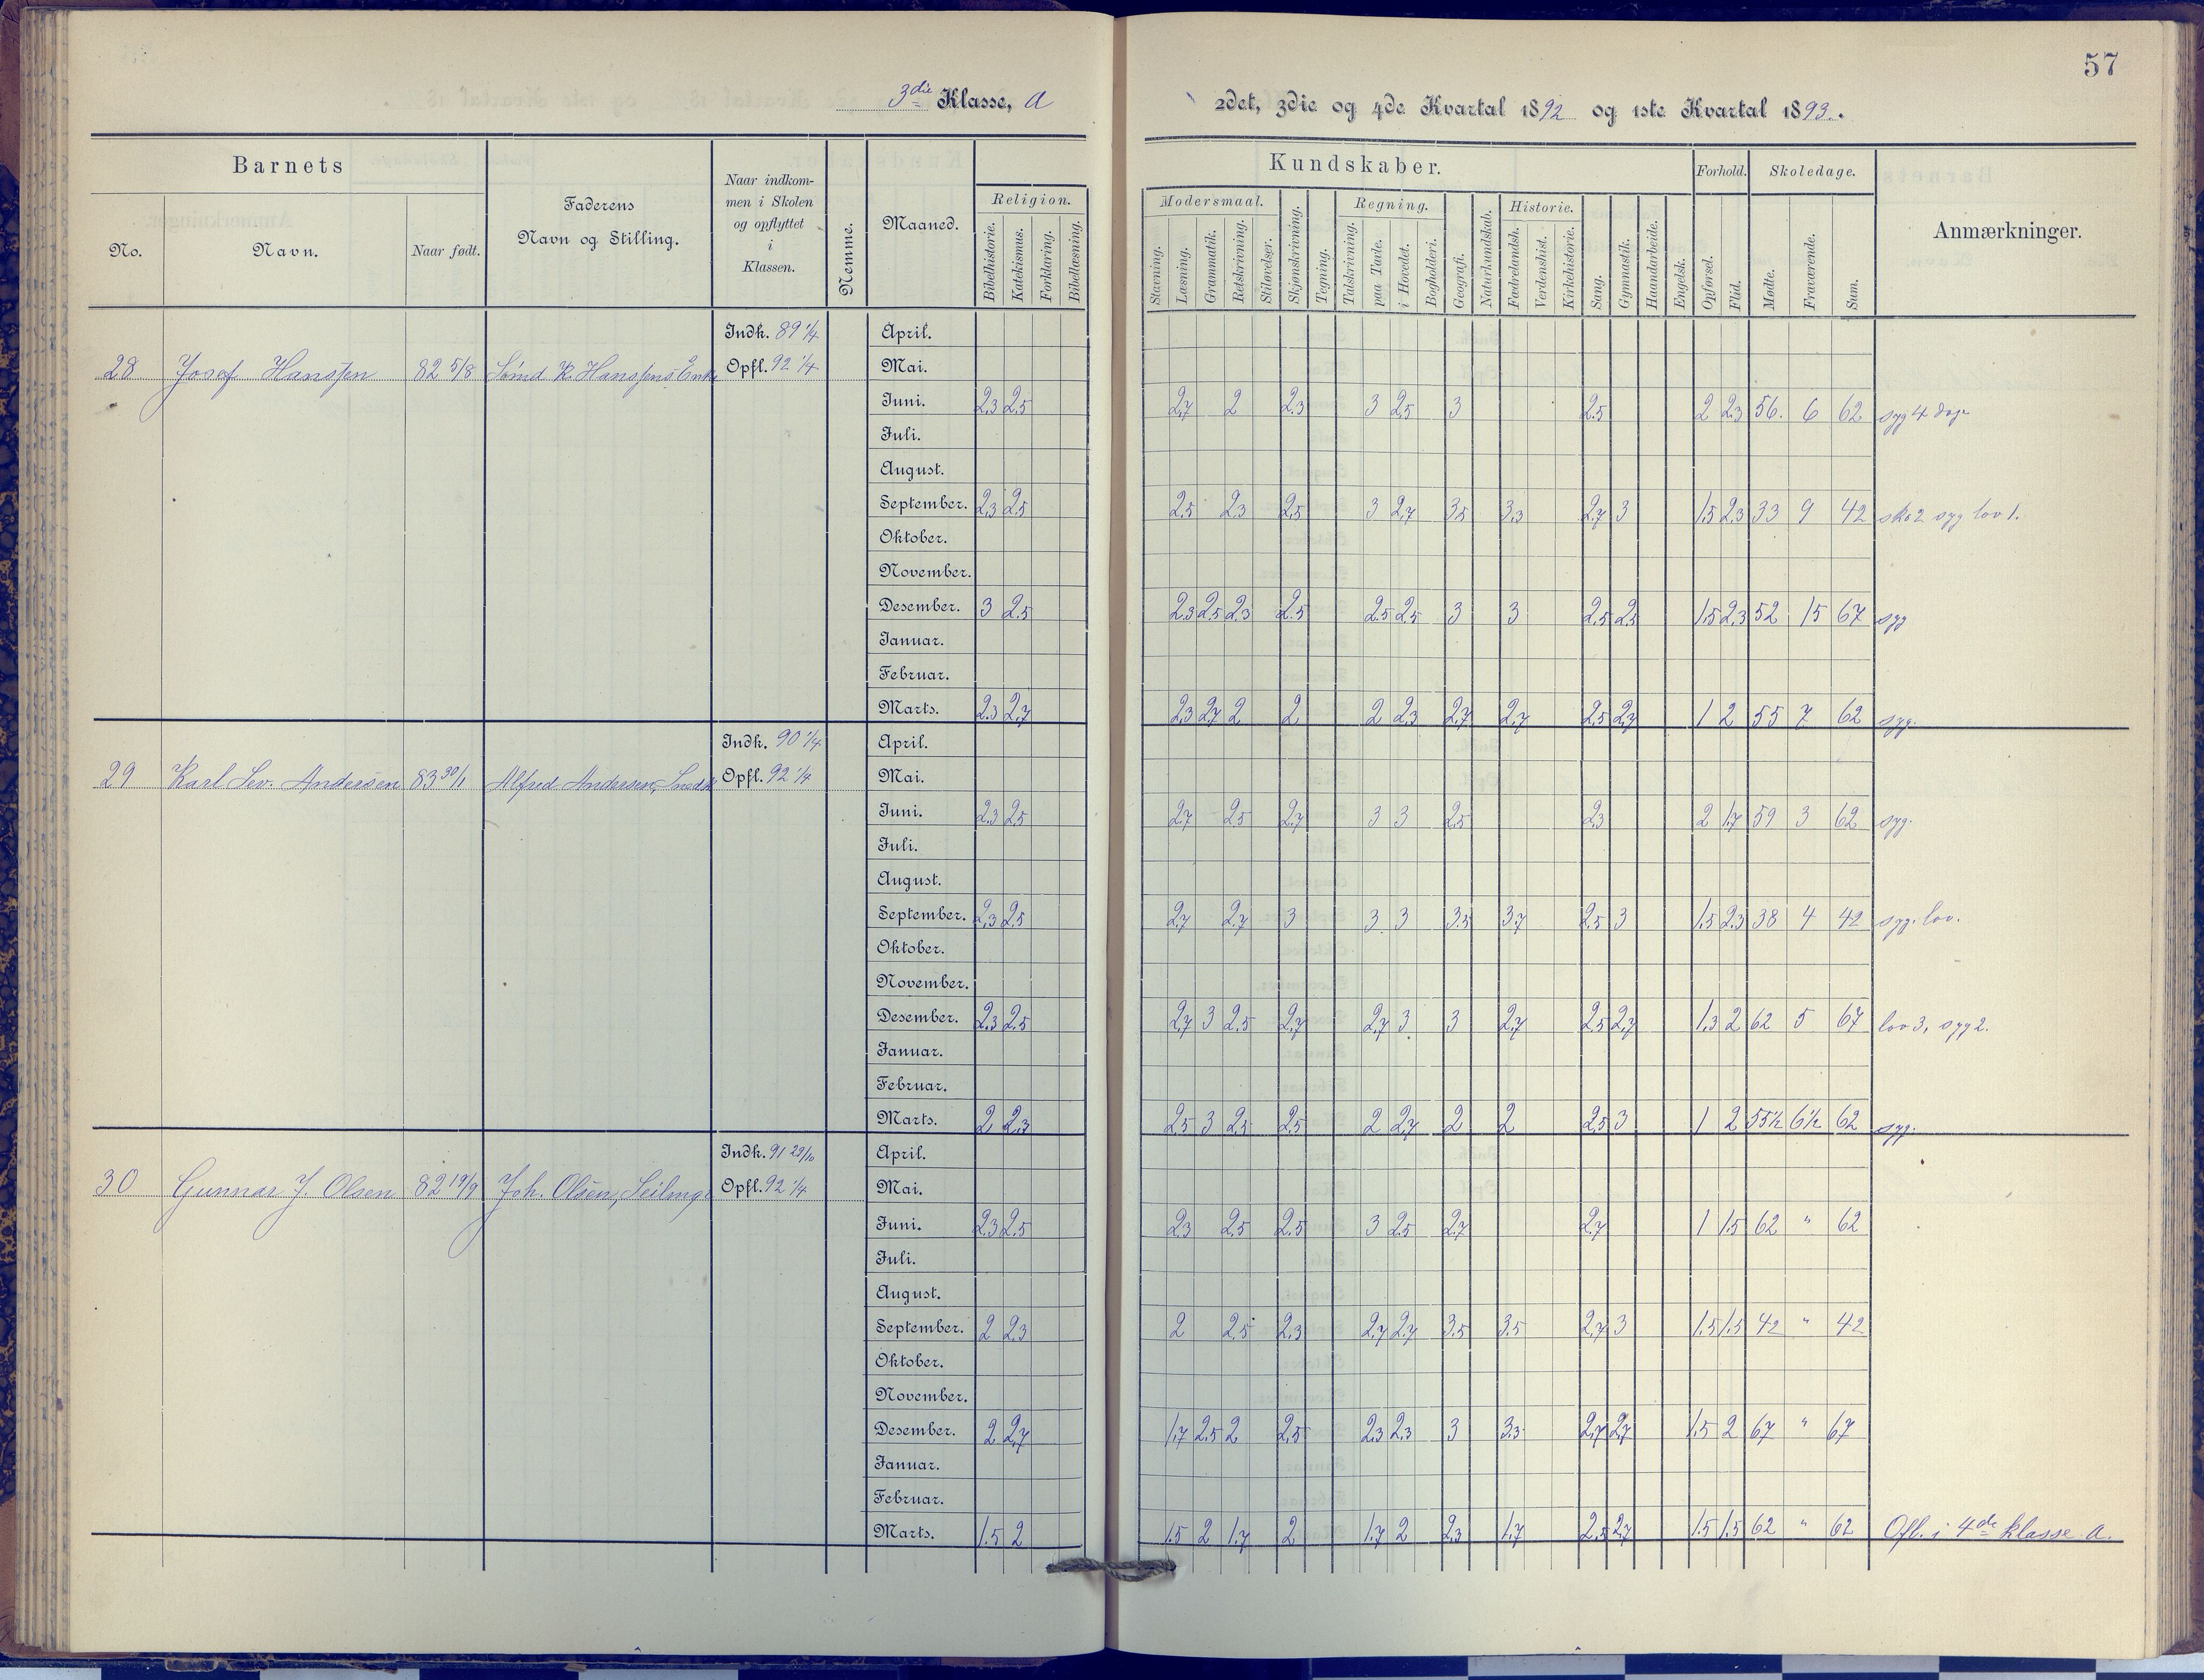 57
3die Klasse, A
2det, 3die og 4de Kvartal 1892 og 1ste Kvartal 1893.
Barnets
No.
Navn.
Naar født.
Faderens
Navn og Stilling.
Naar indkom-
men i Skolen
og opflyttet
i
Klassen.
Nemme.
Maaned.
Religion.
Bibelhistorie. Katekismus. Forklaring. Bibellæsning.
Kundskaber.
Modersmaal.
Stavning. Læsning. Grammatik. Retskrivning. Stiløvelser.
Skjønskrivning. Tegning.
Regning.
Talskrivning. paa Tavle. i Hovedet. Bogholderi.
Geografi. Naturkundskab.
Historie.
Fædrelandsh. Verdenshist. Kirkehistorie.
Sang. Gymnastik. Haandarbeide. Engelsk.
Forhold.
Opførsel. Flid.
Skoledage.
Møde. Fraværende. Sum.
Anmærkninger.
Indk. 89 1/4 April.
28 Josef Hanssen 82 5/8 K. Hanssens Enke Opfl. 92 1/4 Mai.
Juni. 2.3 2.5 2.7 2 2.3 3 2.5 3 2.5 2 2.3 56. 6 62 syg 4 dage
Juli.
August.
September. 2.3 2.5 2.5 2.3 2.5 3 2.7 3.5 3.3 2.7 3 1.5 2.3 33 9 42 sko 2 syg lov 1.
Oktober.
November.
Desember. 3 2.5 2.3 2.5 2.3 2.5 2.5 2.5 3 3 2.5 2.5 1.5 2.3 52 15 67 syg
Januar.
Februar.
Marts. 2.3 2.7 2.3 2.7 2 2 2 2.3 2.7 2.7 2.5 2.7 1 2 55 7 62 syg.
Indk. 90 1/4 April.
29 Karl Sev. Andersen 83 30/1 Alfred Andersen, Snedk Opfl. 92 1/4 Mai.
Juni. 2.3 2.5 2.7 2.5 2.7 3 3 2.5 2.3 2 1.7 59 3 62 syg.
Juli.
August.
September. 2.3 2.5 2.7 2.7 3 3 3 3.5 3.7 2.5 3 1.5 2.3 38 4 42 syg. lov.
Oktober.
November.
Desember. 2.3 2.5 2.7 3 2.5 2.7 2.7 3 3 2.7 2.5 2.7 1.3 2 62 5 67 lov 3, syg 2.
Januar.
Februar.
Marts. 2 2.3 2.5 3 2.5 2.5 2 2.7 2 2 2.5 3 1 2 55 1/2 6 1/2 62 syg.
Indk. 91 29/10 April.
30 Gunnar J. Olsen 82 19/9 Joh. Olsen, Seilmg. Opfl. 92 1/4 Mai.
Juni. 2.3 2.5 2.3 2.5 2.5 3 2.5 2.7 2.7 1 1.5 62 " 62
Juli.
August.
September. 2 2.3 2 2.5 2.3 2.7 2.7 3.5 3.5 2.7 3 1.5 1.5 42 " 42
Oktober.
November.
Desember. 2 2.7 1.7 2.5 2 2.5 2.3 2.3 3 3.3 2.7 2.7 1.5 2 67 " 67
Januar.
Februar.
Marts. 1.5 2 1.5 2 1.7 2 1.7 2 2.3 1.7 2.5 2.7 1.5 1.5 62 " 62 Ofl. i 4de klasse a.